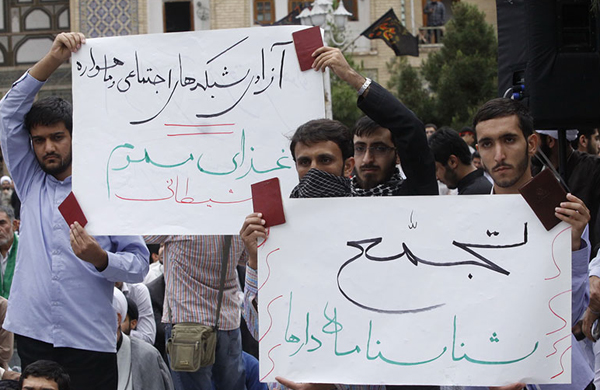 آزادی شبکه‌های اجتماعی و ماهواره
=
غذای
شیطانی
تجمّع
شناسنامه دارها